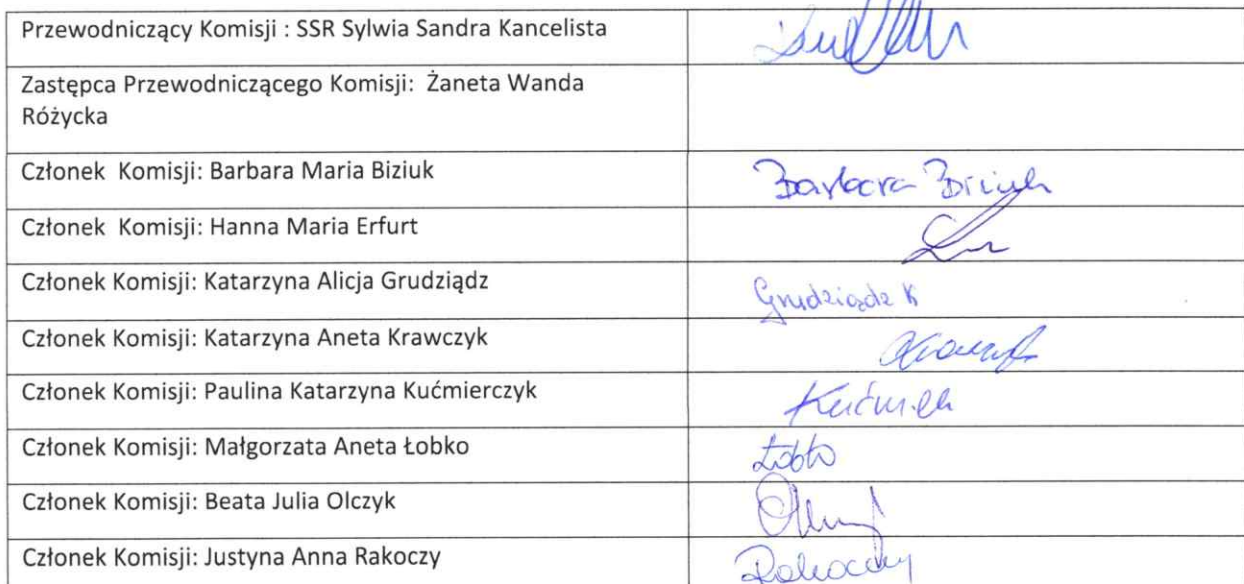 Przewodniczący Komisji : SSR Sylwia Sandra Kancelista
Zastępca Przewodniczącego Komisji: Żaneta Wanda
Różycka
Członek Komisji: Barbara Maria Biziuk
Barbara Biziuk
Członek Komisji: Hanna Maria Erfurt
Członek Komisji: Katarzyna Alicja Grudziądz
Grudziądz K
Członek Komisji: Katarzyna Aneta Krawczyk
Członek Komisji: Paulina Katarzyna Kućmierczyk
Członek Komisji: Małgorzata Aneta Łobko
Łobko
Członek Komisji: Beata Julia Olczyk
Członek Komisji: Justyna Anna Rakoczy
Rakoczy